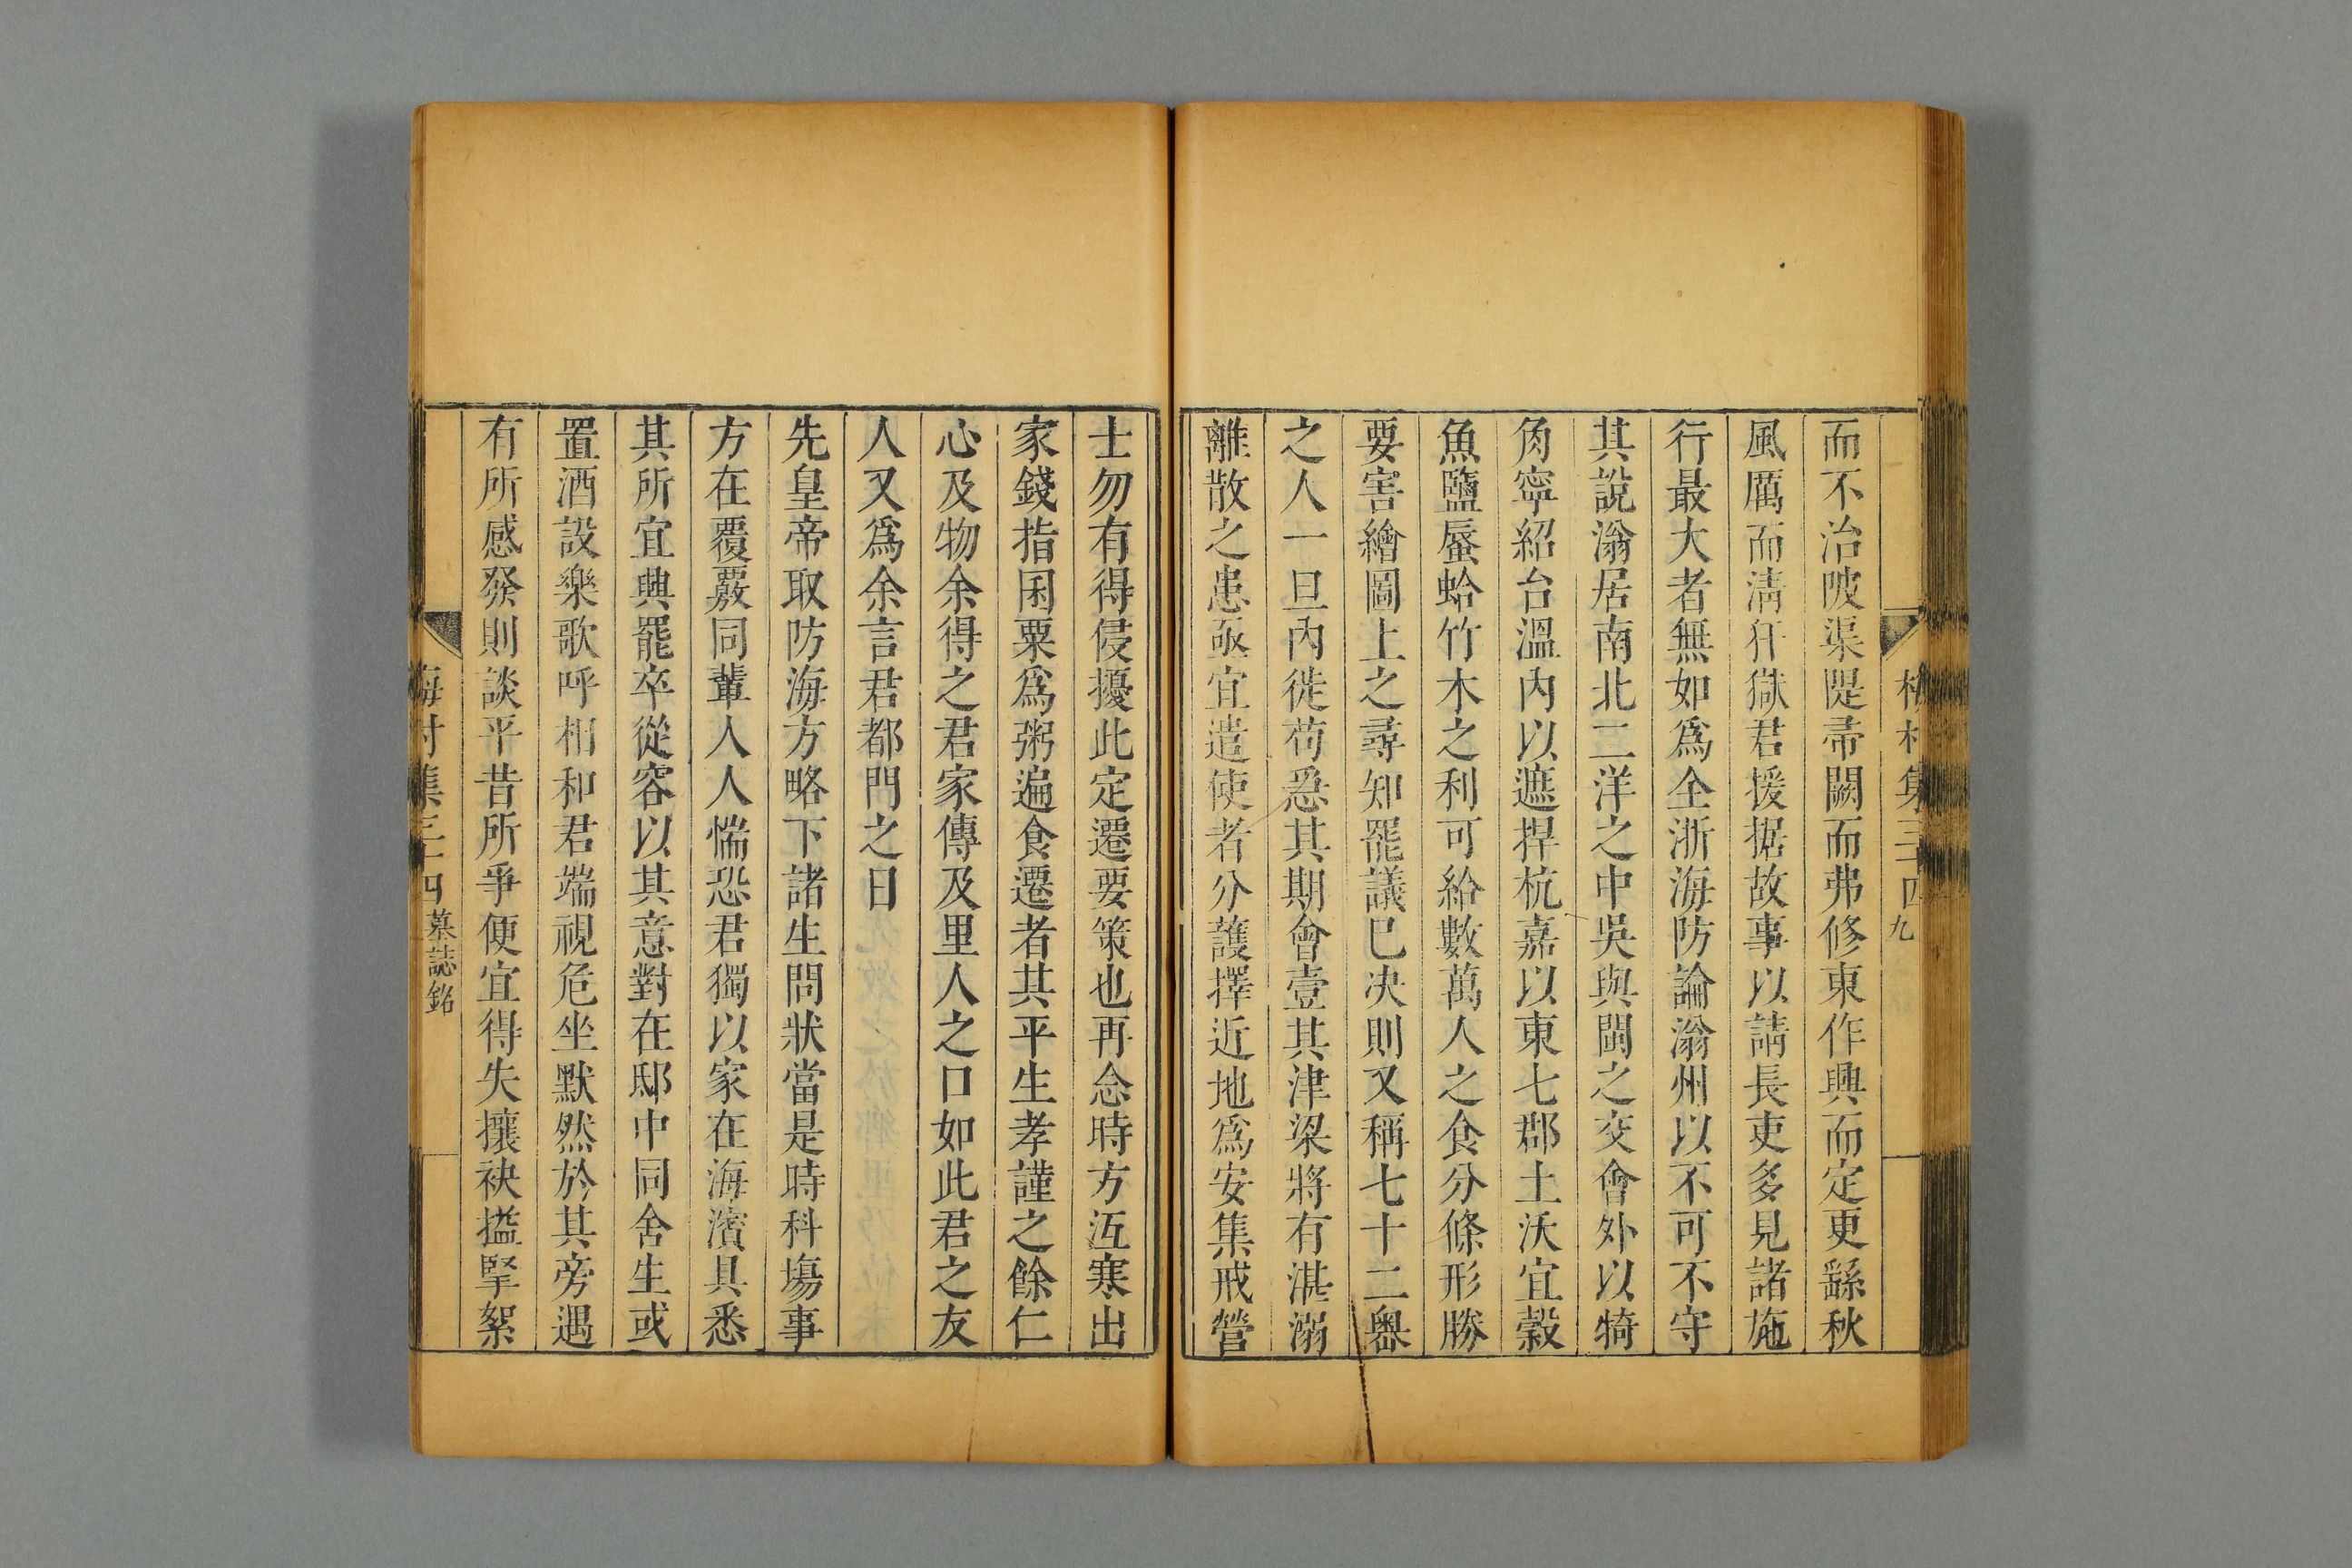 梅村集三十四 九
而不治陂渠隄帚闕而弗修東作興而定更繇秋
風厲而清犴獄君援据故事以請長吏多見諸施
行最大者無如爲全浙海防論滃州以不可不守
其說滃居南北二洋之中吳與閩之交會外以犄
角寧紹台溫內以遮捍杭嘉以東七郡土沃宜穀
魚鹽蜃蛤竹木之利可給數萬人之食分條形勝
要害繪圖上之尋知罷議巳决則又稱七十二嶴
之人一旦內徙苟愆其期會壹其津梁將有湛溺
離散之患亟宜遣使者分護擇近地爲安集戒營
士勿有得侵擾此定遷要策也再念時方沍寒出
家錢指囷粟爲粥遍食遷者其平生孝謹之餘仁
心及物余得之君家傳及里人之口如此君之友
人又爲余言君都門之日
先皇帝取防海方略下諸生問狀當是時科塲事
方在覆覈同輩人人惴恐君獨以家在海濱具悉
其所宜興罷卒從容以其意對在邸中同舍生或
置酒設樂歌呼相和君端視危坐默然於其旁遇
有所感發則談平昔所爭便宜得失攘袂搤掔絮
梅村集三十四 墓誌銘